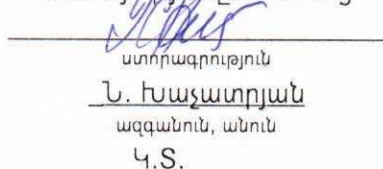 ստորագրություն
Ն. Խաչատրյան
ազգանուն, անուն
Կ.Տ.